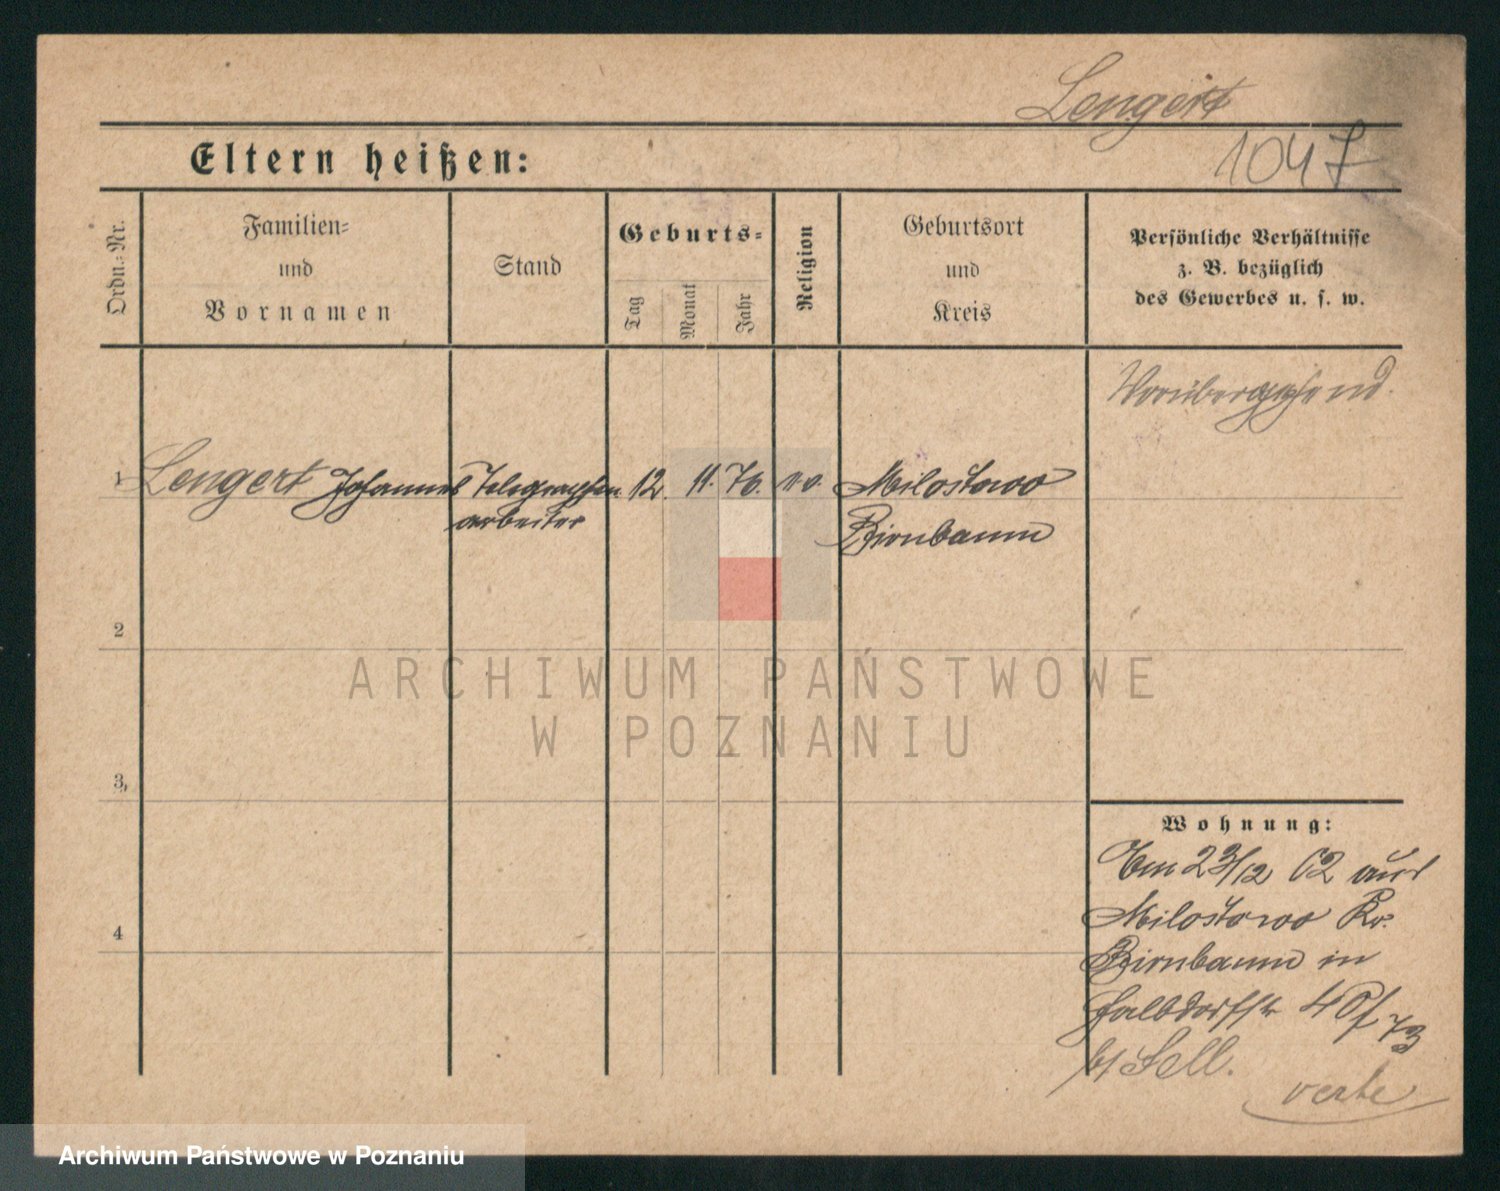 Lengert
1047
Eltern heißen:
Ordn.-Nr.
Familien-
und
Vornamen
Stand
Geburts-
Tag
Monat
Jahr
Religion
Geburtsort
und
Kreis
Persönliche Verhältnisse
z. B. bezüglich
des Gewerbes u. s. w.
Vorübergehend.
1 Lengert Johannes Telegraphen 12. 11. 76. Milostowo
arbeiter Birnbaum
2
3,
4
ARCHIWUM PAŃSTWOWE
W POZNANIU
Wohnung:
23/12 02 aus
Milostowo Kr.
Birnbaum in
40
b/ Sell.
verte
Archiwum Państwowe w Poznaniu